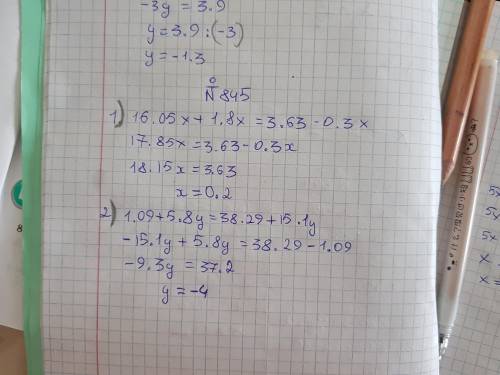 -3y = 3.9
y = 3.9 : (-3)
y = -1.3
№ 845
1) 16.05x + 1.8x = 3.63 - 0.3x
17.85x = 3.63 - 0.3x
18.15x = 3.63
x = 0.2
2) 1.09 + 5.8y = 38.29 + 15.1y
-15.1y + 5.8y = 38.29 - 1.09
-9.3y = 37.2
y = -4
5x
5x
x
x =
8